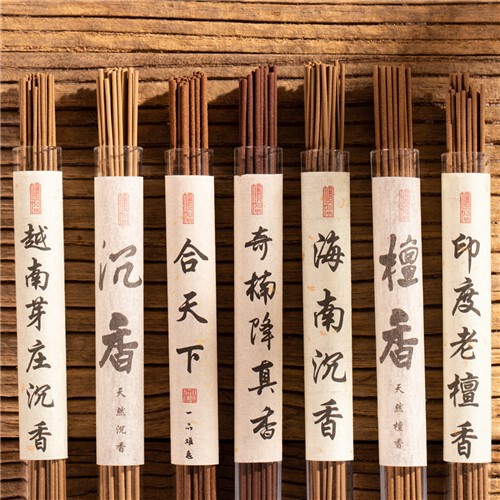 越南芽庄沉香
沉香
天然沉香
合天下
奇楠降真香
海南沉香
檀香
天然檀香
印度老檀香